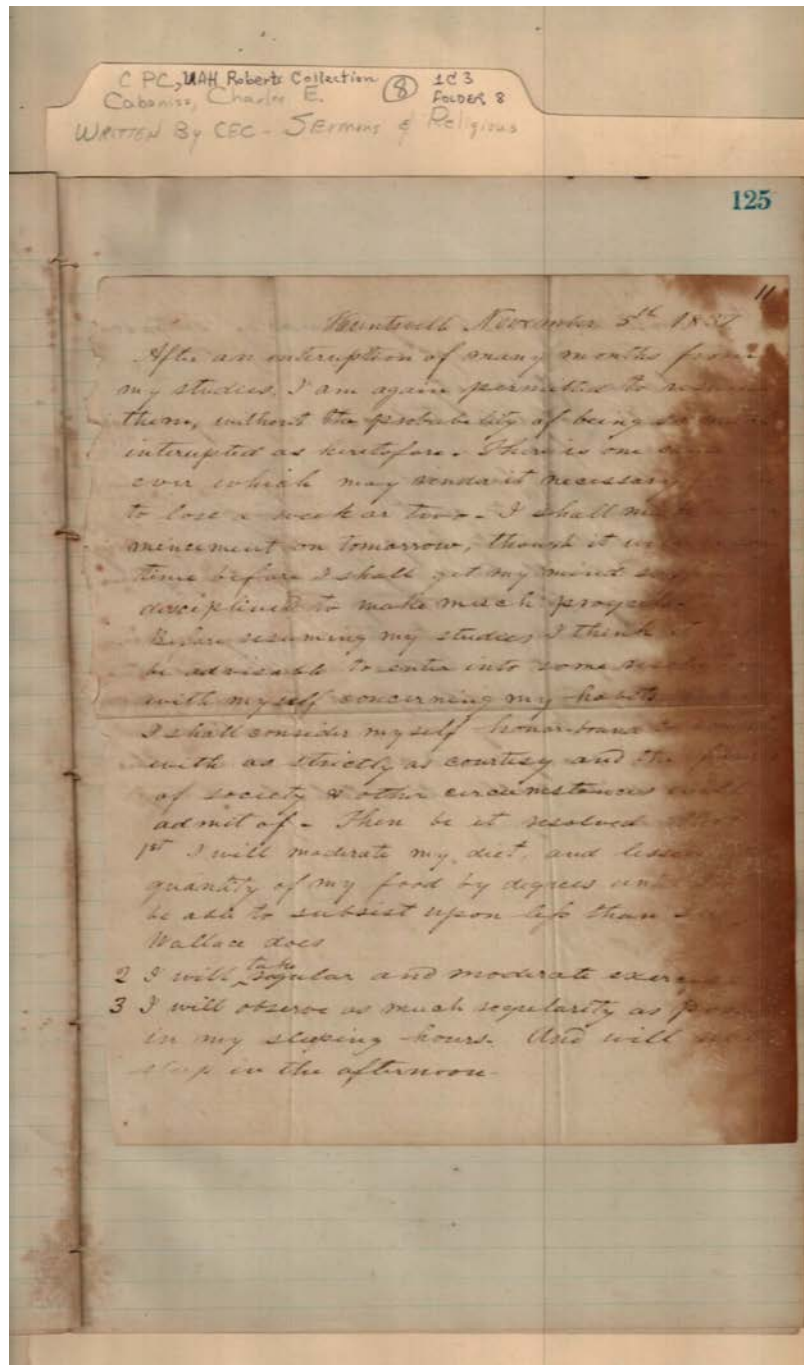 C PC, UAH Roberts Collection 8 1C3
Cabaniss, Charles E. FOLDER 8
WRITTEN By CEC - SErmons & Religious
125
11
Huntsville November 5th 183
After an interuption of many months from
my studies, I am again permitted to resume
them, without the probability of being so much
interupted as heretofore. There is one
ever which may render it necessary
to lose a week or two. I shall
mencement on tomorrow, though it will
time before I shall get my mind
disciplined to make much progress
Before resuming my studies I think it
be advisable to enter into some
with myself concerning my habits
I shall consider myself honor-bound to
with as strictly as courtesy and the
of society & other circumstances will
admit of - Then be it resolved
1st I will moderate my diet, and lessen
quantity of my food by degrees until
be able to subsist upon less than
Wallace does
2 I will take regular and moderate exercise
3 I will observe as much regularity as
in my sleeping hours. And will not
sleep in the afternoon